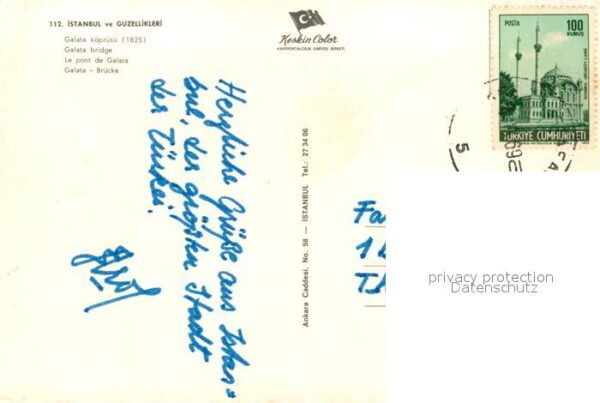 112. İSTANBUL ve GÜZELLİKLERİ
Galata köprüsü (1825)
Galata bridge
Le pont de Galata
Galata - Brücke
Keskin Color
KARTPOSTALCILIK LIMITED ŞİRKETİ
POSTA
100
KURUŞ
TÜRKİYE CUMHURİYETİ
5
69
Herzliche Grüße aus Istan=
bul, der größten Stadt
der Türkei.
Ankara Caddesi, No. 98 — İSTANBUL Tel.: 27 34 06
Fa
1
privacy protection
Datenschutz